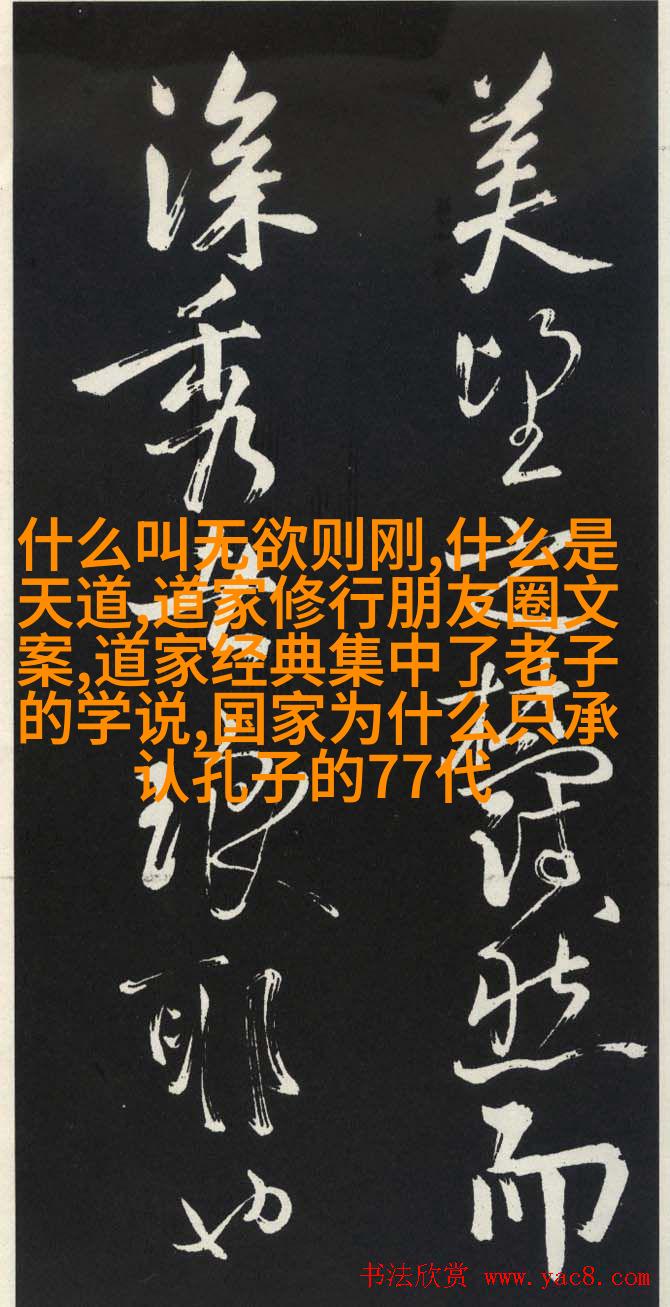 美望之蔚然而
深秀者琅耶也
什么叫无欲则刚,什么是
天道,道家修行朋友圈文
案,道家经典集中了老子
的学说,国家为什么只承
认孔子的77代
书法欣赏 www.yac8.com